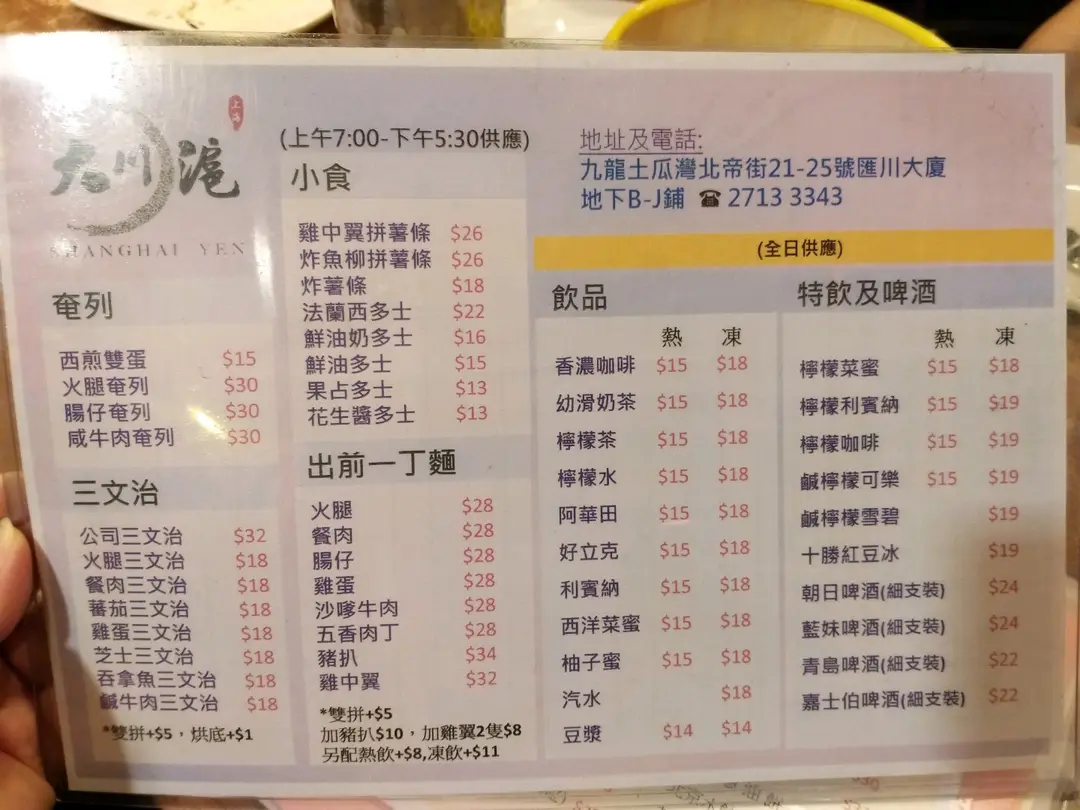 上海
大川滬
SHANGHAI YEN
奄列
西煎雙蛋 $15
火腿奄列 $30
腸仔奄列 $30
咸牛肉奄列 $30
三文治
公司三文治 $32
火腿三文治 $18
餐肉三文治 $18
蕃茄三文治 $18
雞蛋三文治 $18
芝士三文治 $18
吞拿魚三文治 $18
鹹牛肉三文治 $18
*雙拼+$5，烘底+$1
(上午7:00-下午5:30供應)
小食
雞中翼拼薯條 $26
炸魚柳拼薯條 $26
炸薯條 $18
法蘭西多士 $22
鮮油奶多士 $16
鮮油多士 $15
果占多士 $13
花生醬多士 $13
出前一丁麵
火腿 $28
餐肉 $28
腸仔 $28
雞蛋 $28
沙嗲牛肉 $28
五香肉丁 $28
豬扒 $34
雞中翼 $32
*雙拼+$5
加豬扒$10，加雞翼2隻$8
另配熱飲+$8,凍飲+$11
地址及電話:
九龍土瓜灣北帝街21-25號匯川大廈
地下B-J鋪 ☎ 2713 3343
(全日供應)
飲品
熱 凍
香濃咖啡 $15 $18
幼滑奶茶 $15 $18
檸檬茶 $15 $18
檸檬水 $15 $18
阿華田 $15 $18
好立克 $15 $18
利賓納 $15 $18
西洋菜蜜 $15 $18
柚子蜜 $15 $18
汽水 $18
豆漿 $14 $14
特飲及啤酒
熱 凍
檸檬菜蜜 $15 $18
檸檬利賓納 $15 $19
檸檬咖啡 $15 $19
鹹檸檬可樂 $15 $19
鹹檸檬雪碧 $19
十勝紅豆冰 $19
朝日啤酒(細支裝) $24
藍妹啤酒(細支裝) $24
青島啤酒(細支裝) $22
嘉士伯啤酒(細支裝) $22